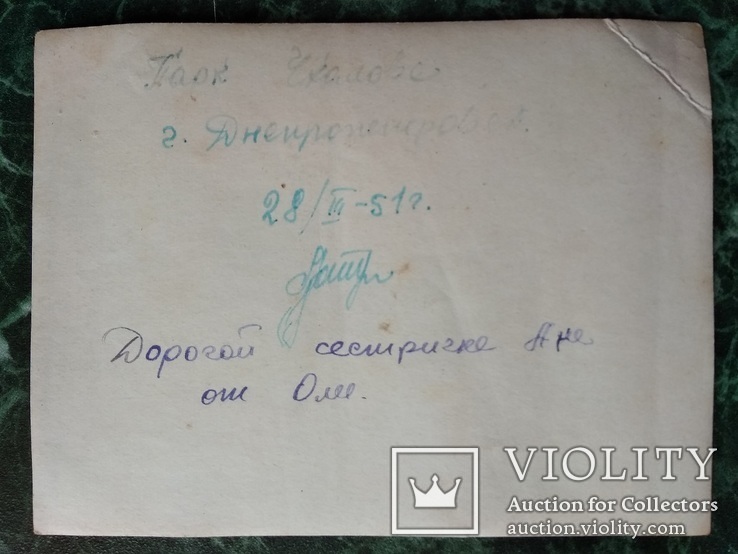 Парк Чкалова
г. Днепропетровск.
28/III-51г.
Дорогой сестричке Ане
от Оли.
VIOLITY
Auction for Collectors
auction.violity.com